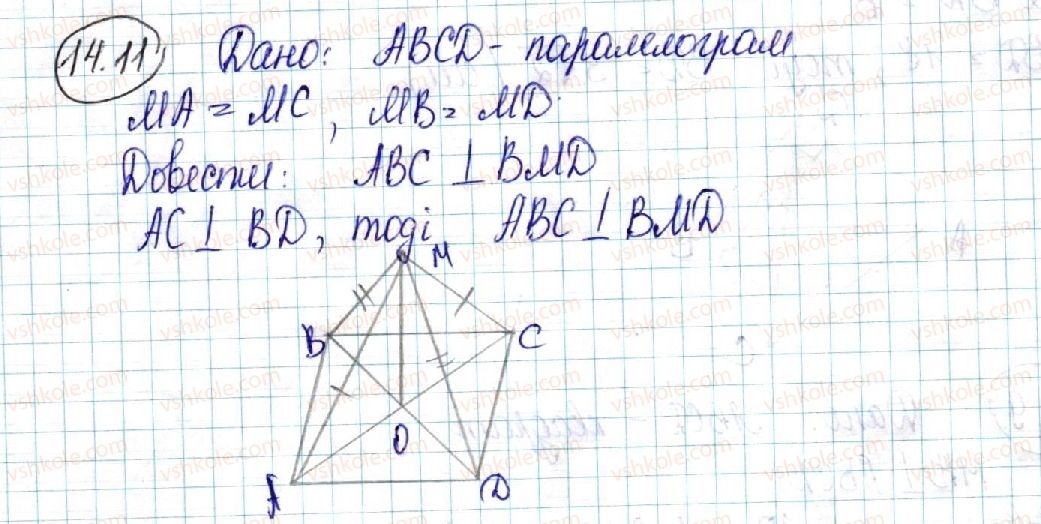 14.11 Дано: ABCD - паралелограм
MA = MC, MB = MD.
Довести: ABC ⊥ BMD
AC ⊥ BD, тоді ABC ⊥ BMD
M
B
C
O
A
D
vshkole.com